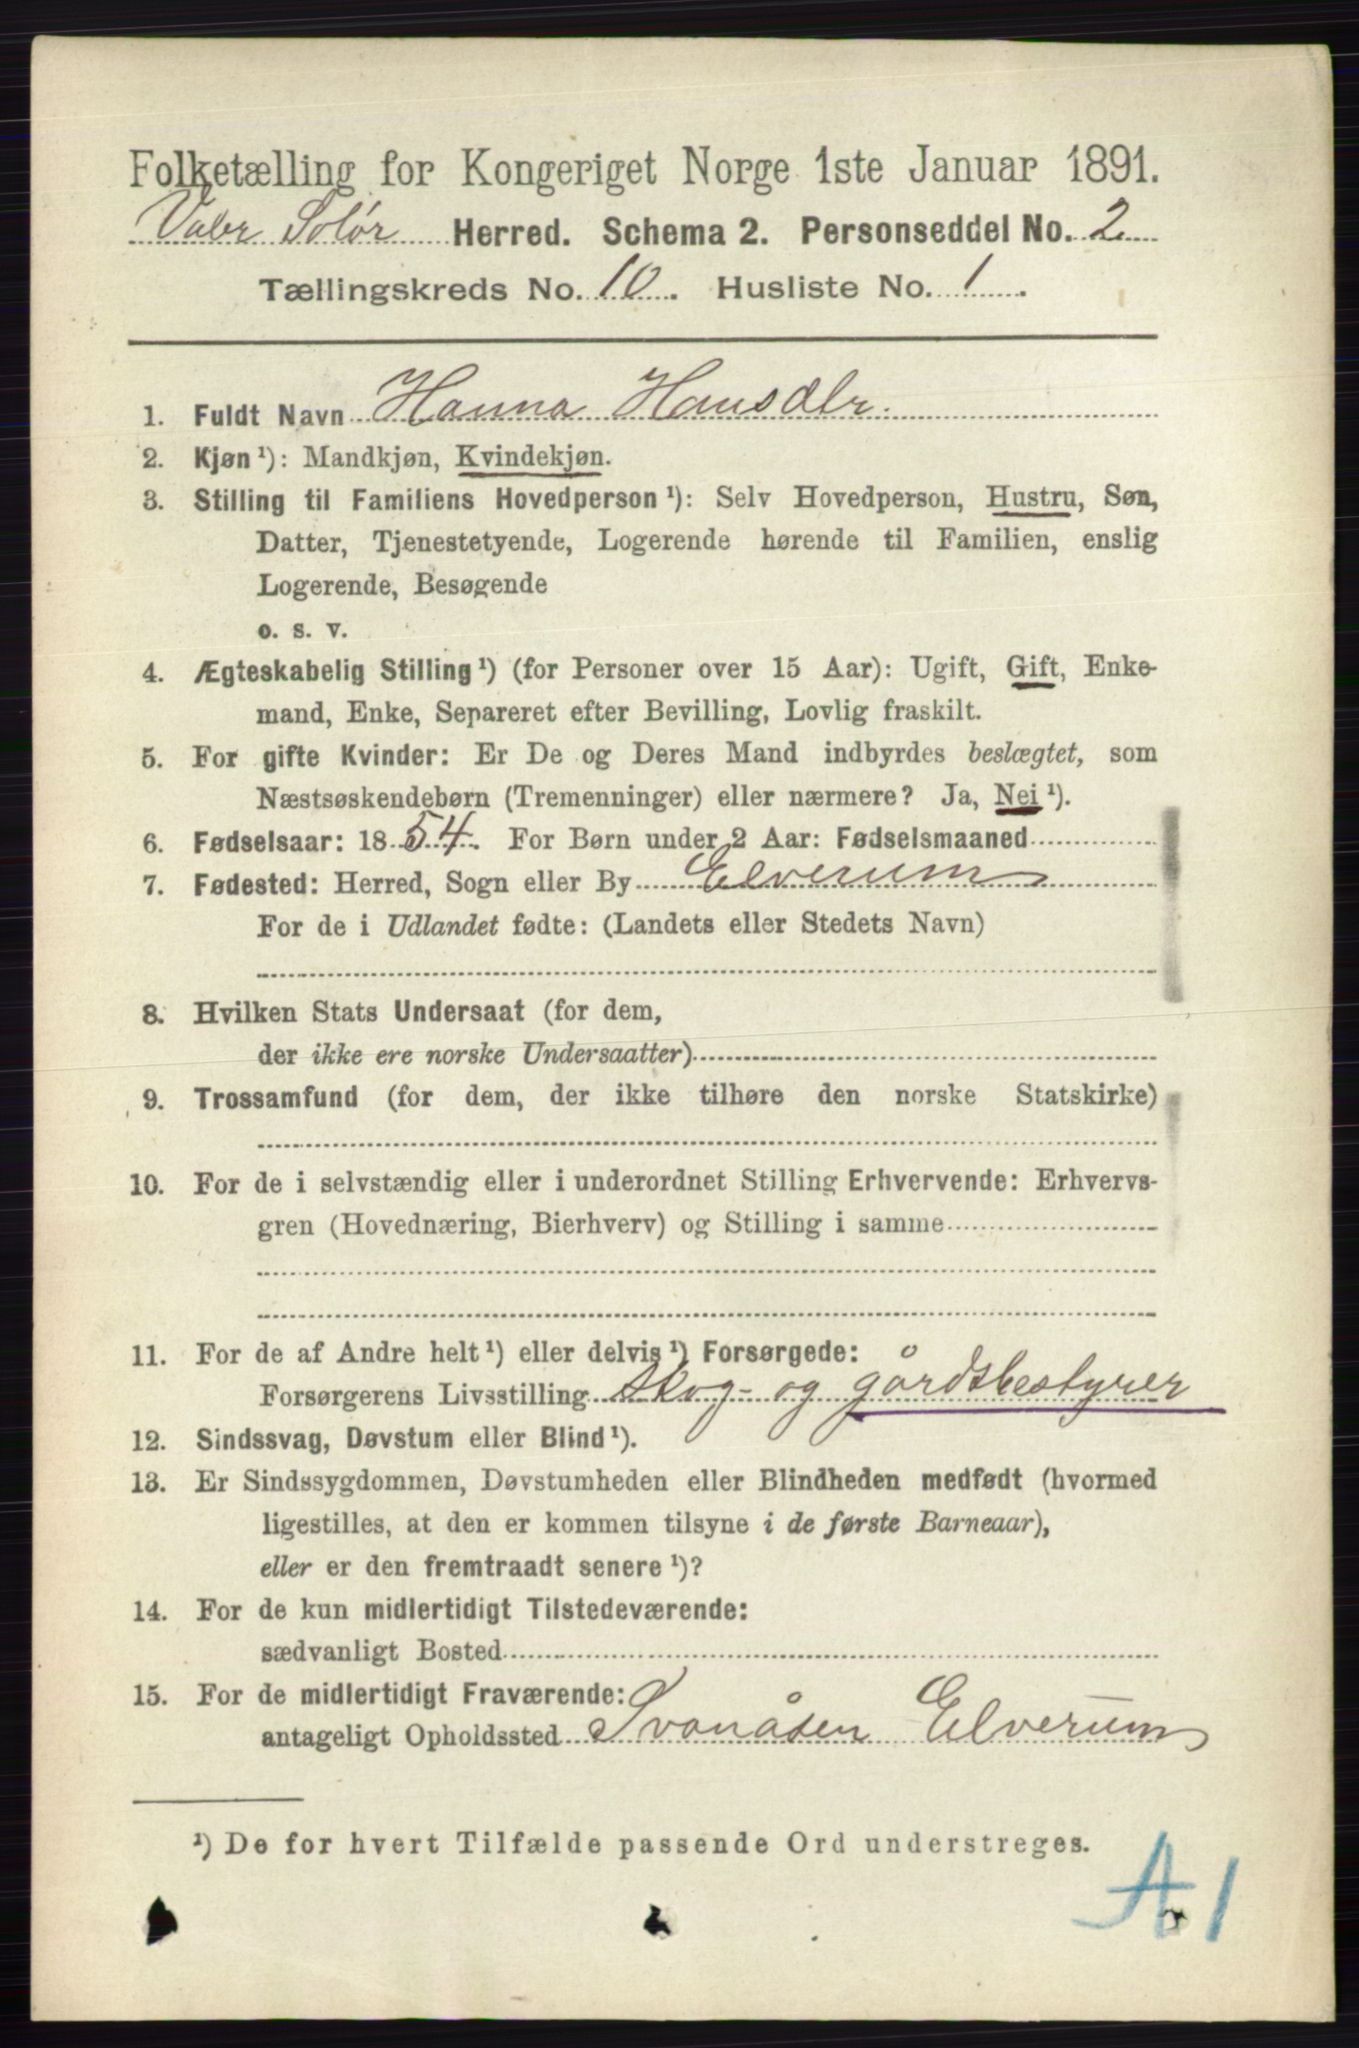 Folketælling for Kongeriget Norge 1ste Januar 1891.
Valer Solør Herred. Schema 2. Personseddel No. 2
Tællingskreds No. 10. Husliste No. 1.
1. Fuldt Navn Hanna Hansdtr.
2. Kjøn ¹): Mandkjøn, Kvindekjøn.
3. Stilling til Familiens Hovedperson ¹): Selv Hovedperson, Hustru, Søn,
Datter, Tjenestetyende, Logerende hørende til Familien, enslig
Logerende, Besøgende
o. s. v.
4. Ægteskabelig Stilling ¹) (for Personer over 15 Aar): Ugift, Gift, Enke-
mand, Enke, Separeret efter Bevilling, Lovlig fraskilt.
5. For gifte Kvinder: Er De og Deres Mand indbyrdes beslægtet, som
Næstsøskendebørn (Tremenninger) eller nærmere? Ja, Nei ¹).
6. Fødselsaar: 1854. For Børn under 2 Aar: Fødselsmaaned
7. Fødested: Herred, Sogn eller By Elverum
For de i Udlandet fødte: (Landets eller Stedets Navn)
8. Hvilken Stats Undersaat (for dem,
der ikke ere norske Undersaatter)
9. Trossamfund (for dem, der ikke tilhøre den norske Statskirke)
10. For de i selvstændig eller i underordnet Stilling Erhvervende: Erhvervs-
gren (Hovednæring, Bierhverv) og Stilling i samme
11. For de af Andre helt ¹) eller delvis ¹) Forsørgede:
Forsørgerens Livsstilling Skog- og gårdsbestyrer
12. Sindssvag, Døvstum eller Blind ¹).
13. Er Sindssygdommen, Døvstumheden eller Blindheden medfødt (hvormed
ligestilles, at den er kommen tilsyne i de første Barneaar),
eller er den fremtraadt senere ¹)?
14. For de kun midlertidigt Tilstedeværende:
sædvanligt Bosted
15. For de midlertidigt Fraværende:
antageligt Opholdssted Svanåsen Elverum
¹) De for hvert Tilfælde passende Ord understreges.
A 1